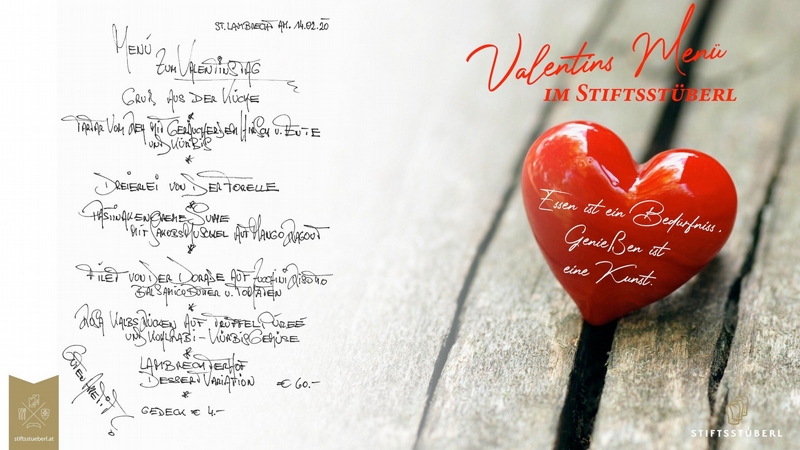 ST. LAMBRECHT AM. 14.02.20
MENÜ
ZUM VALENTINSTAG
GRUß AUS DER KÜCHE
*
TARTAR VOM REH MIT GERÄUCHERTEM HIRSCH U. ENTE
UND KÜRBIS
*
DREIERLEI VON DER FORELLE
*
PASTINAKENCREME SUPPE
MIT JAKOBSMUSCHEL AUF MANGO RAGOUT
*
FILET VON DER DORADE AUF ZUCCHINI RISOTTO
BALSAMICO U. TOMATEN
*
ROSA KALBSRÜCKEN AUF TRÜFFEL PÜREE
UND KOHLRABI - KÜRBISGEMÜSE
*
LAMBRECHTERHOF
DESSERT VARIATION € 60.-
GUTEN APPETIT
GEDECK € 4.-
stiftsstueberl.at
Valentins Menü
IM STIFTSSTÜBERL
Essen ist ein Bedürfniss.
Genießen ist
eine Kunst.
STIFTSSTÜBERL